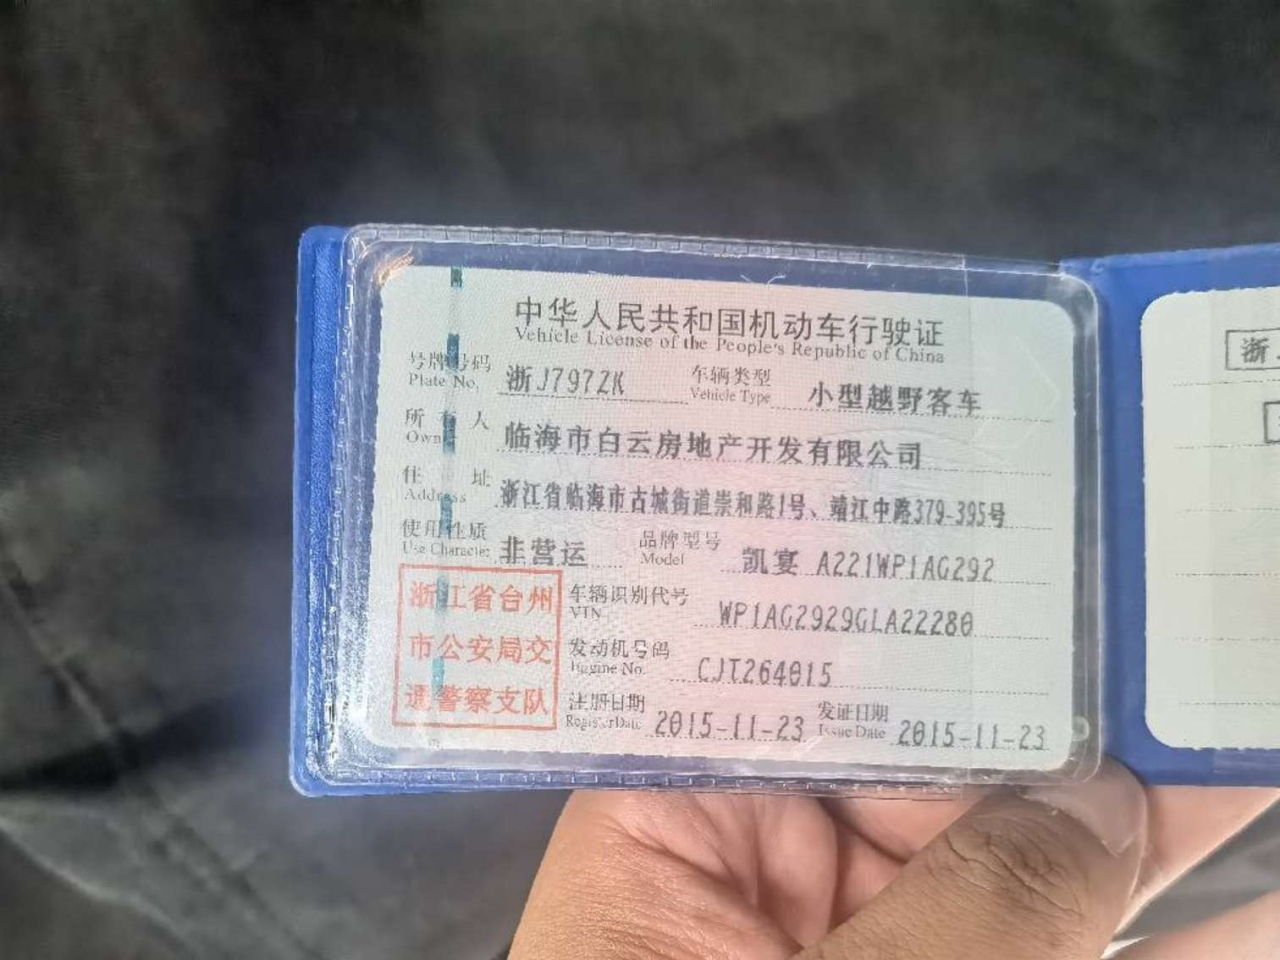 中华人民共和国机动车行驶证
Vehicle License of the People's Republic of China
号牌号码 浙J797ZK 车辆类型 小型越野客车
Plate No. Vehicle Type
所有人 临海市白云房地产开发有限公司
Owner
住址 浙江省临海市古城街道崇和路1号、靖江中路379-395号
Address
使用性质 非营运 品牌型号 凯宴 A221WP1AG292
Use Character Model
浙江省台州
市公安局交
通警察支队
车辆识别代号 WP1AG2929GLA22280
VIN
发动机号码 CJT264015
Engine No.
注册日期 2015-11-23 发证日期 2015-11-23
Register Date Issue Date
浙